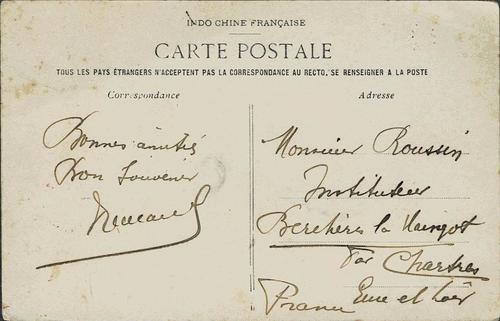 INDO CHINE FRANÇAISE
CARTE POSTALE
TOUS LES PAYS ÉTRANGERS N'ACCEPTENT PAS LA CORRESPONDANCE AU RECTO, SE RENSEIGNER A LA POSTE
Correspondance
Adresse
Bonnes amitiés
Bon Souvenir
Monsieur Roussin
Instituteur
Berchères la Maingot
Par Chartres
Eure et Loir
France